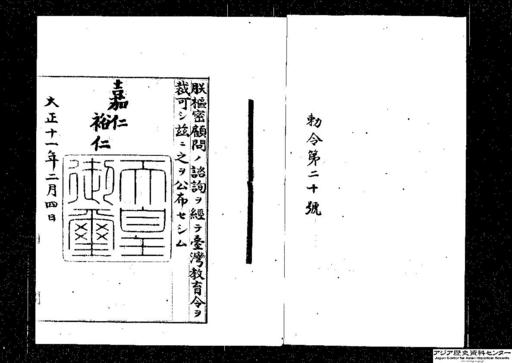 勅令第二十號
朕樞密顧問ノ諮詢ヲ經テ臺灣教育令ヲ
裁可シ玆ニ之ヲ公布セシム
嘉仁
裕仁
天皇
御璽
大正十一年二月四日
アジア歴史資料センター
Japan Center for Asian Historical Records